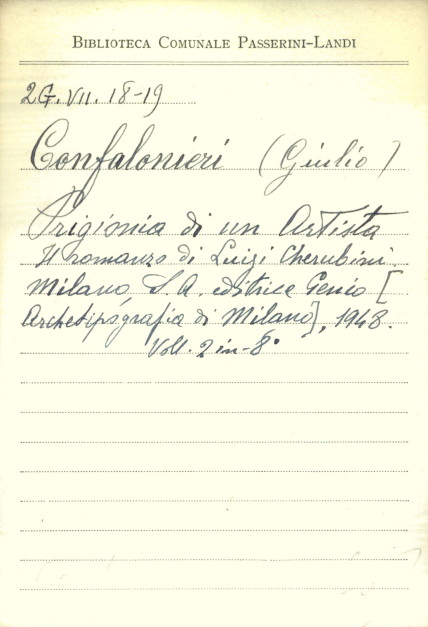 BIBLIOTECA COMUNALE PASSERINI-LANDI
2G.VII.18-19
Confalonieri (Giulio)
Prigionia di un Artista
Il romanzo di Luigi Cherubini.
Milano, S.A. editrice Genio [
Archetipografia di Milano], 1948.
Voll. 2 in-8°